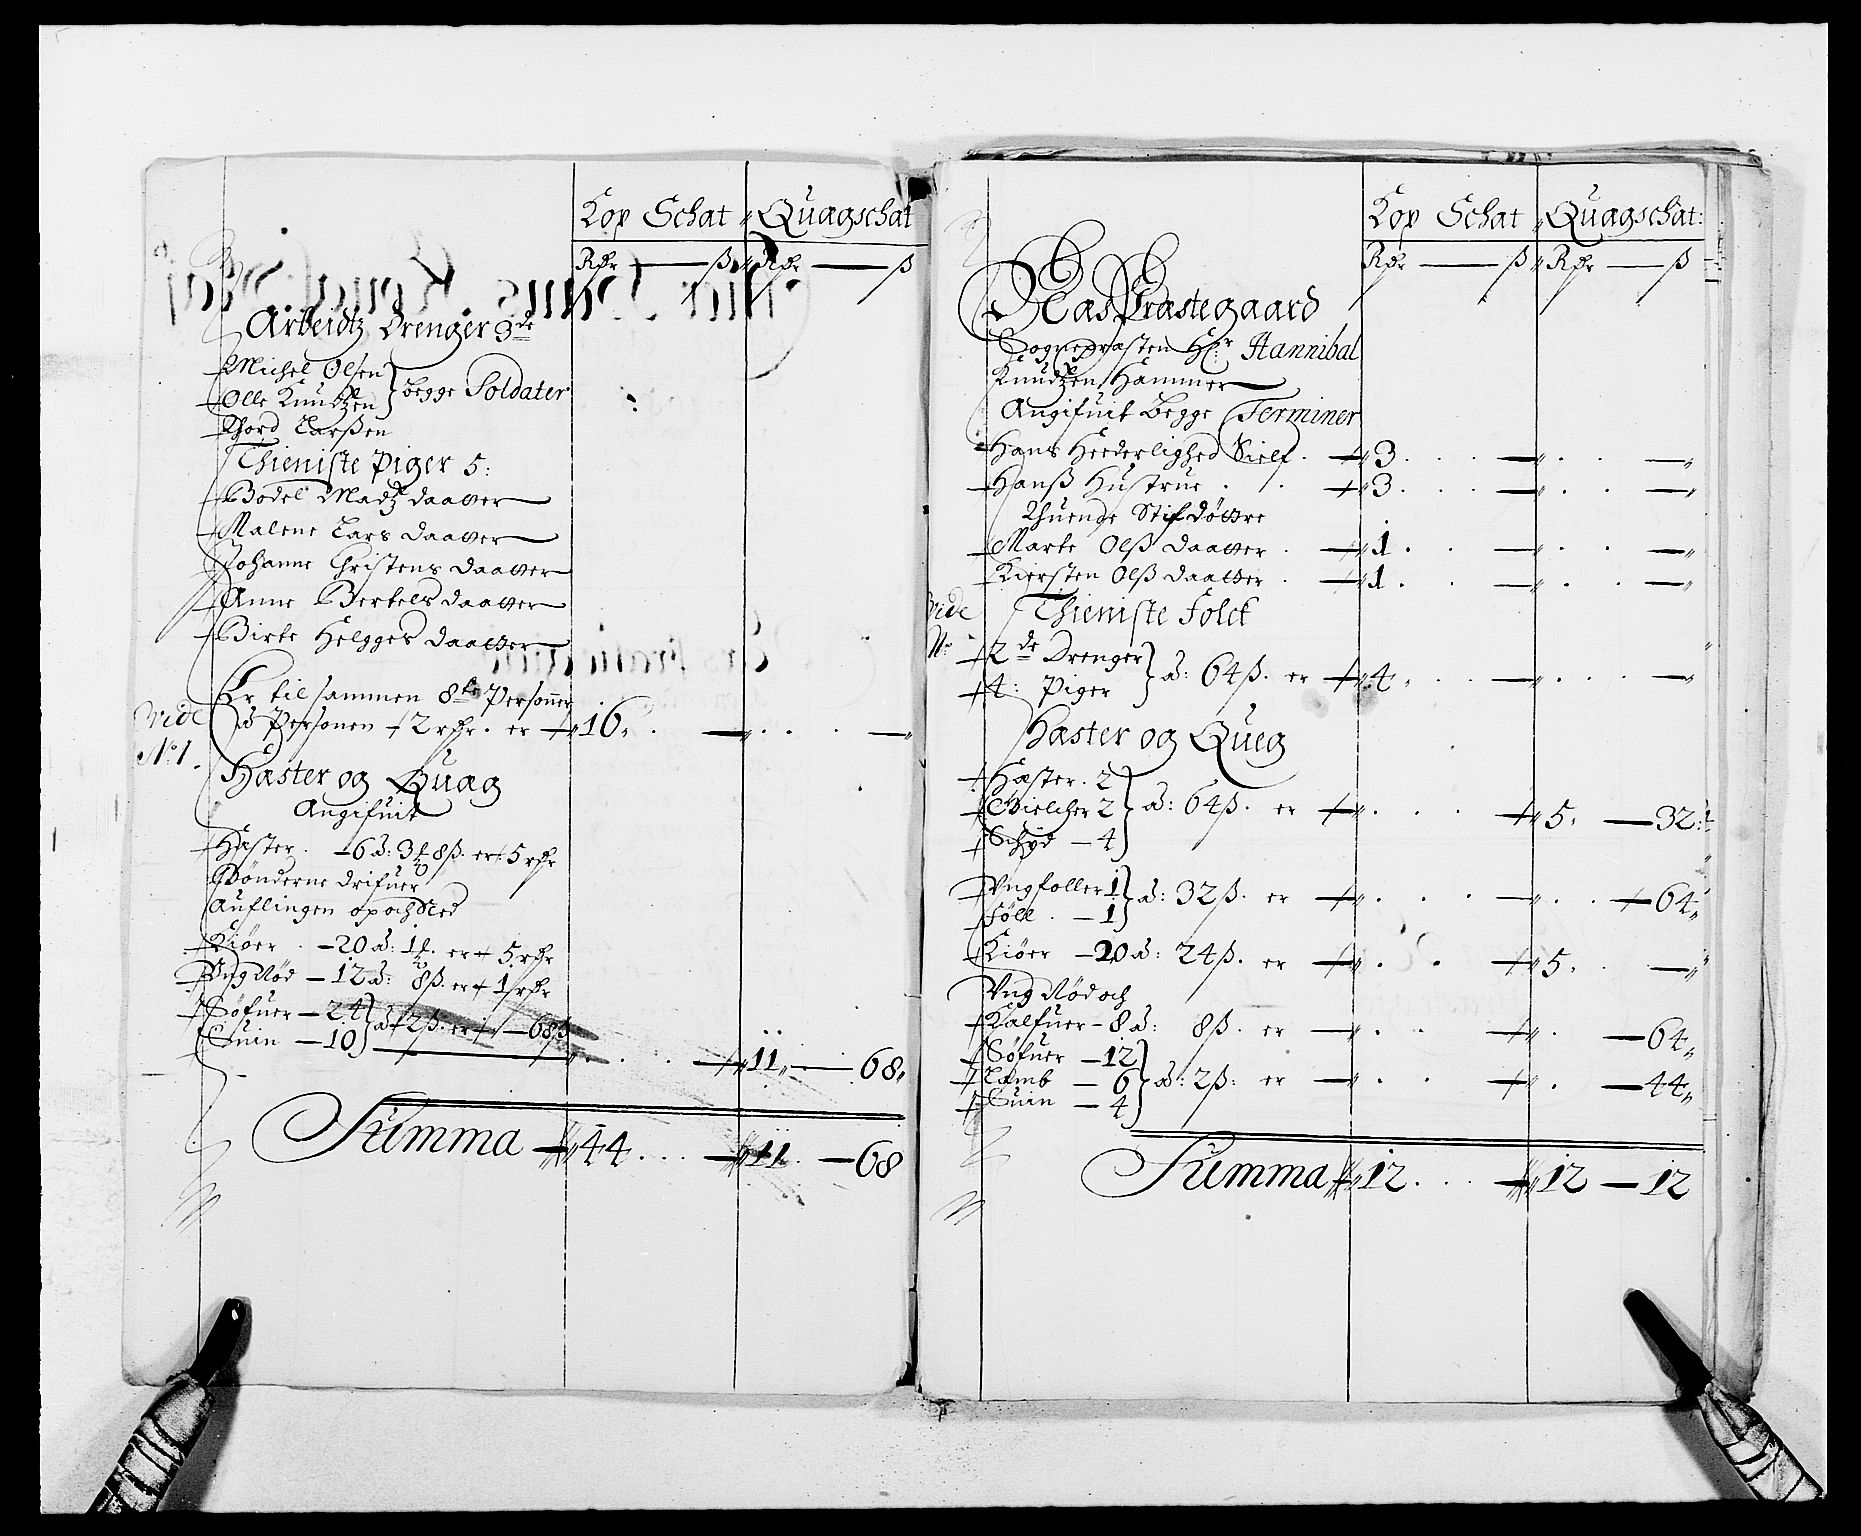 Kop Schat „ Quægschat
Rdr — ß „ Rdr — ß
Arbeidtz Drenger 3de
Michel Olsen
Olle Knudtzen } begge Soldater
Thord Larßen
Thieniste Piger 5:
Bodel Madtz daatter
Malene Lars daatter
Johanne Christens daatter
Anne Bertels daatter
Birte Helgges daatter
Er til sammen 8te Personer
Vide
â Personen 2 rdr. er 16
No 1.
Hæster og Quæg
Angifuit
Hæster. 6 â: 3 ℔ 8 ß. er 5 rdr
Bønderne drifuer
Auflingen op och Ned
Kiøer. 20 â: 1 ℔. er 5 rdr
Ung Nød 12 â: 8 ß. er 1 rdr
Søfuer 24
Suin 10 } â 2 ß. er 68 ß
11 — 68
Summa 44 . . . 11 — 68
Kop Schat „ Quægschat:
Rdr — ß „ Rdr — ß
Næs Præstegaard
Sognepræsten Hr Hannibal
Knudtzen Hammer
Angifuit begge Terminer
Hans Hæderlighed Sielf. 3
Hanß Hustrue . 3
Thuende Stifdøttre
Marte Olß daatter . 1
Kiersten Olß daatter . 1
Vide
Thieniste Folck
No
2de Drenger
4: Piger } â: 64 ß. er 4
Hæster og Queg
Hæster. 2
Bielcher 2 } â: 64 ß. er 5 — 32
Schyd — 4
Ung foller 1
Føll. — 1 } â: 32 ß. er 64
Kiøer 20 â: 24 ß. er 5
Ung Nød och
Kalfuer 8 â: 8 ß. er 64
Søfuer 12
Lamb — 6 } â: 2 ß: er 44
Suin — 4
Summa 12 . . . 12 — 12